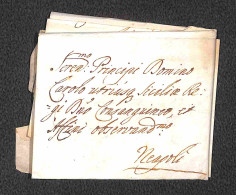 Seren.mo Principi Domino
Carolo utriusq. Siciliæ Re-
gi D.no Consanguineo, et
Affini observand.mo
Neapoli